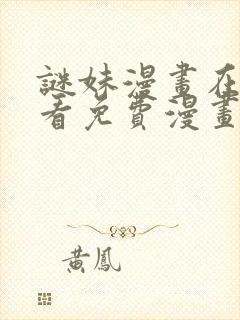 謎妹漫畫在
看免費漫畫
黃鳳